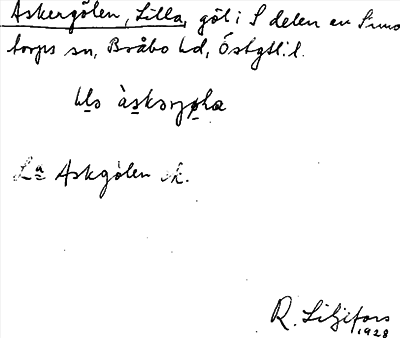 Askergölen, Lilla, göl i S delen av Simo
torps sn, Bråbo hd, Östgtl. l.
La Askgölen ek.
R. Liljefors
1928